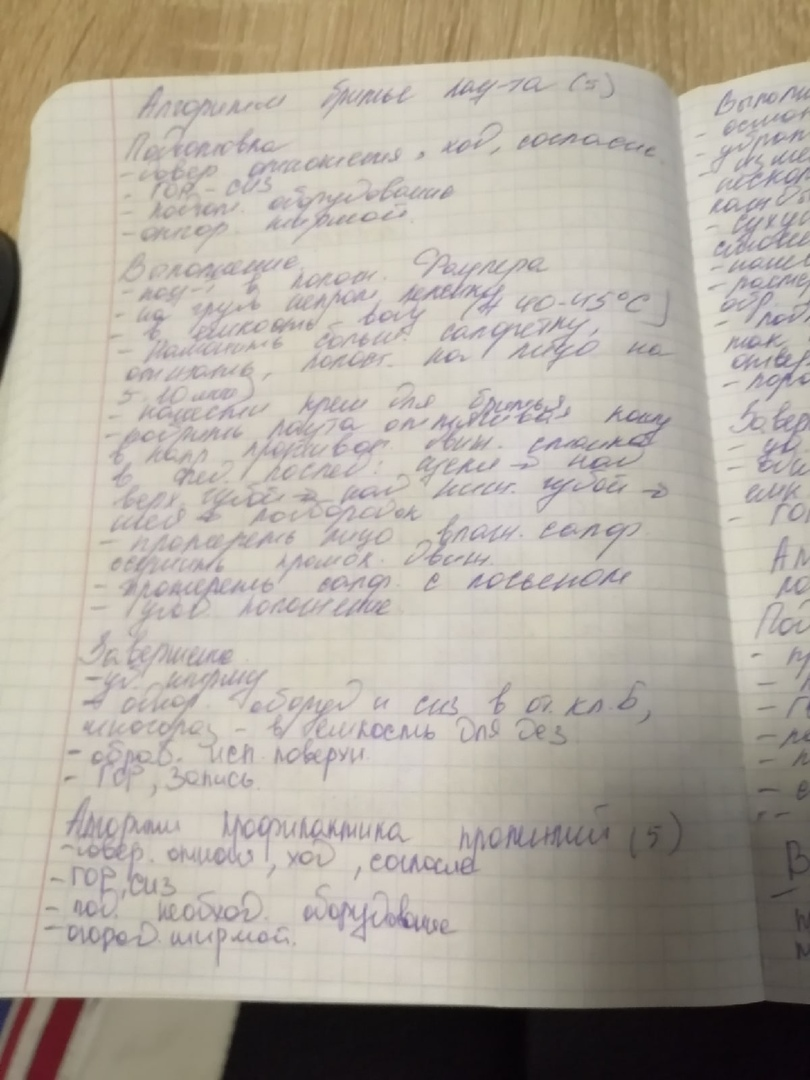 Алгоритм бритье пац-та (5)
Подготовка
- довер. отношения, ход, согласие.
- ГОР - СИЗ
- подгот. оборудование
- отгор. ширмой.
Выполнение
- пац-т в полож. Фаулера
- на грудь непром. пеленку
- в емкость воду (t 40-45°C)
- намочить больш. салфетку,
отжать, полож. на лицо на
5-10 мин
- нанести крем для бритья
- побрить пац-та оттягивая кожу
в напр. противоп. движ. станка
в след. послед: щеки → над
верх. губой → под ниж. губой →
шея → подбородок
- протереть лицо влаж. салф.
осушить промок. движ.
- протереть салф. с лосьеном
- удоб. положение
Завершено
- уб. ширму
- однор. оборуд и сиз в от. кл. Б,
многораз - в емкость для дез.
- обраб. исп. поверхн.
- ГОР, запись.
Алгоритм профилактика пролежней (5)
- довер. отнош, ход, согласие
- ГОР, СИЗ
- под. необход. оборудование
- отород. ширмой.
Выполн
- осмот
- убрат
- сухую
- нанес
- раст
обр.
так
отвер
Завер
- уб.
емк
- ГОР
Ал
По